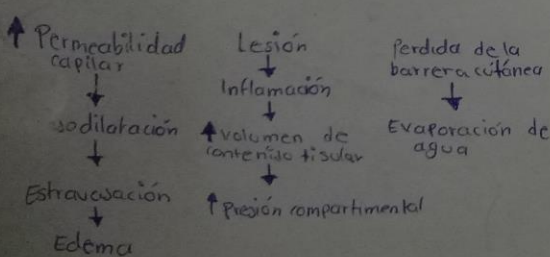 ↑ Permeabilidad
capilar
↓
sodilatación
↓
Estravasación
↓
Edema
Lesión
↓
Inflamación
↓
↑ volumen de
contenido tisular
↓
↑ Presión compartimental
Perdida de la
barrera cútánea
↓
Evaporación de
agua